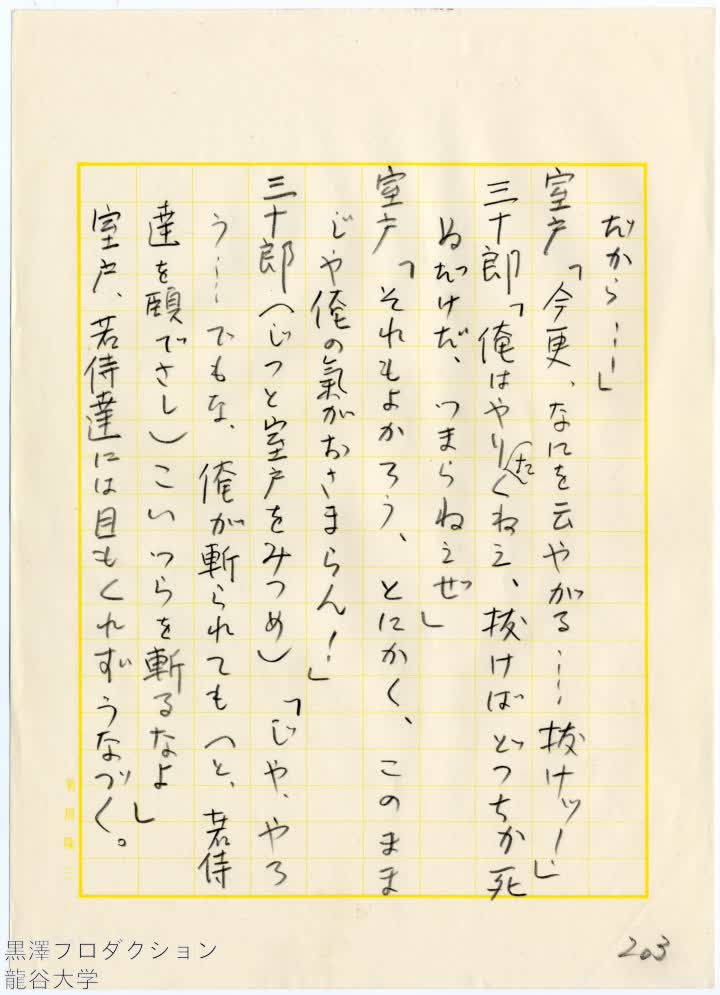 だから……」
室戸「今更、なにを云やがる……抜けッ！」
三十郎「俺はやりたくねえ、抜けばどっちか死
ぬだけだ、つまらねえぜ」
室戸「それもよかろう、とにかく、このまま
じゃ俺の氣がおさまらん！」
三十郎（じっと室戸をみつめ）「じゃ、やろ
う……でもな、俺が斬られても（と、若侍
達を頤でさし）こいつらを斬るなよ」
室戸、若侍達には目もくれずうなづく。
203
黒澤プロダクション
龍谷大学